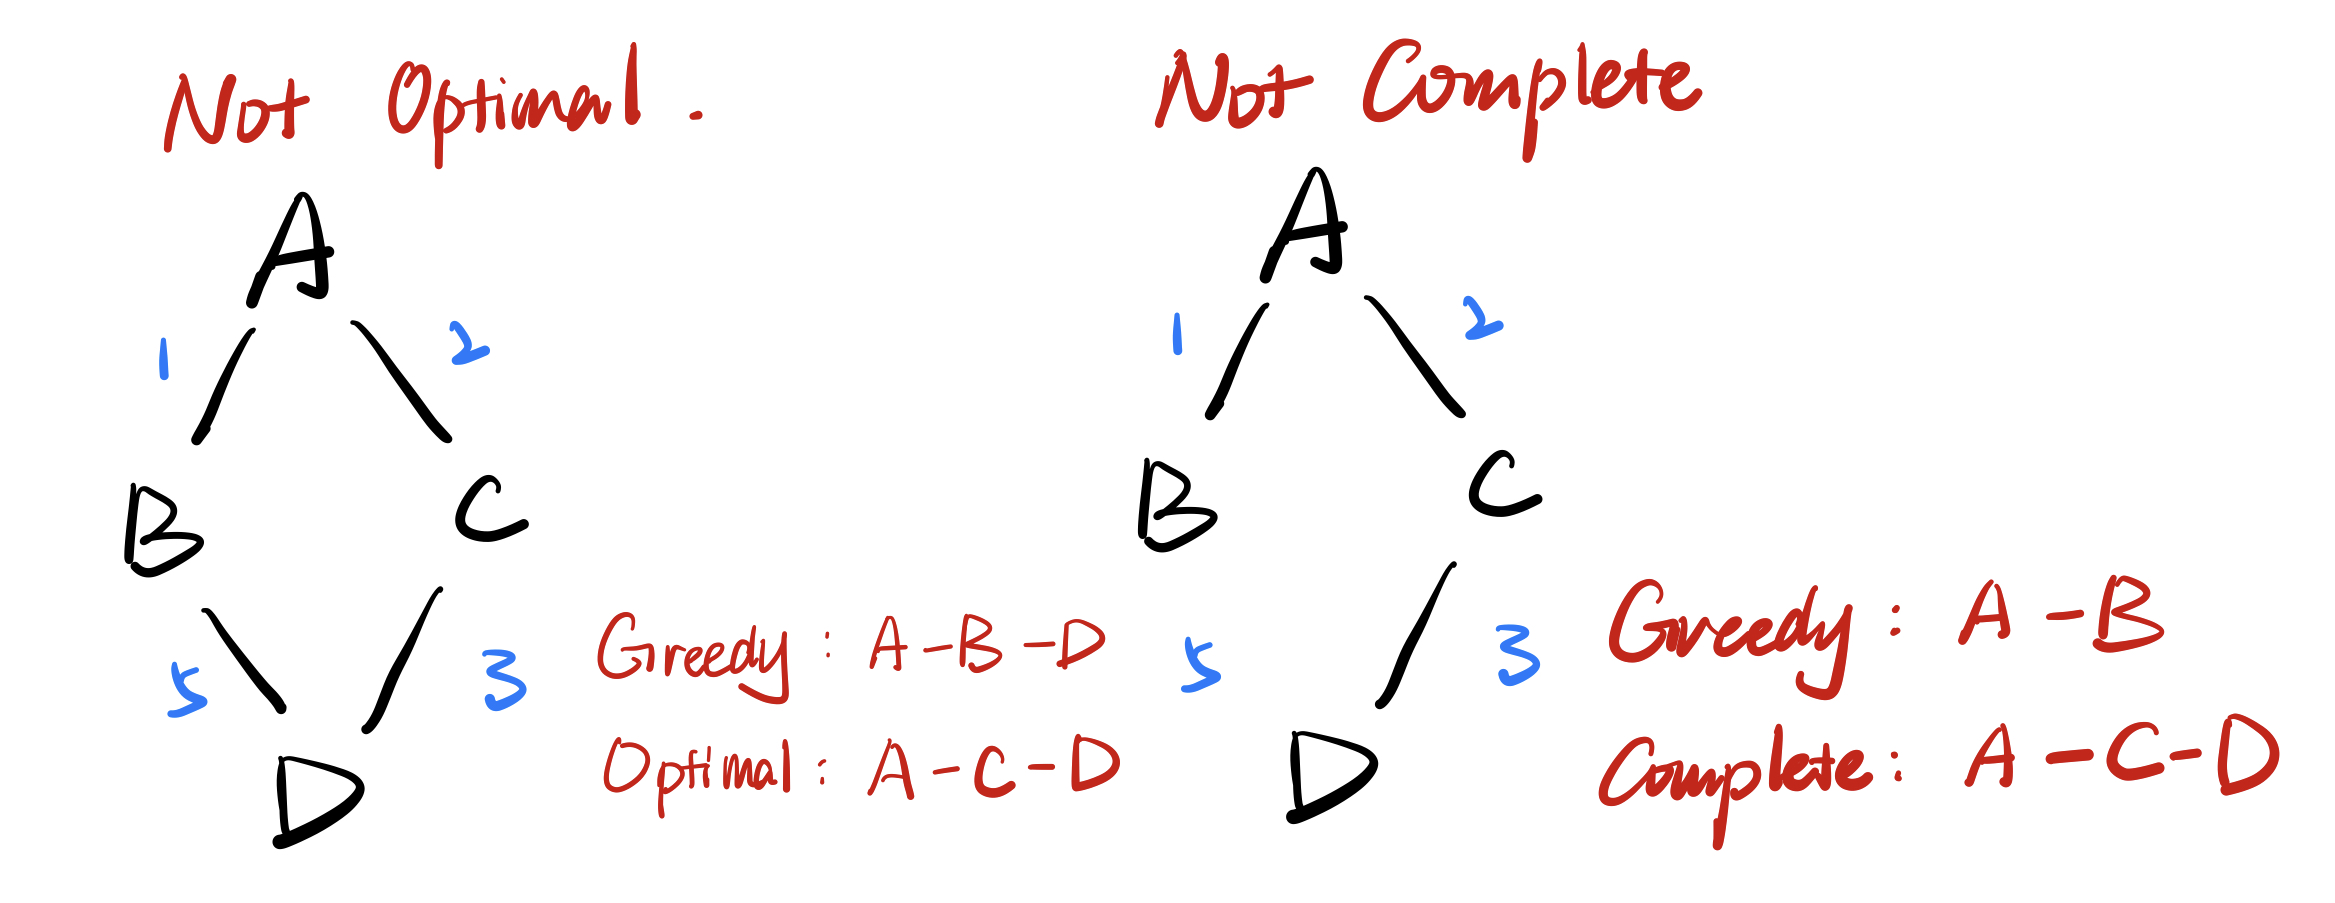 Not Optimal.
A
1 2
B C
5 3
D
Greedy: A-B-D
Optimal: A-C-D
Not Complete
A
1 2
B C
5 3
D
Greedy: A-B
Complete: A-C-D